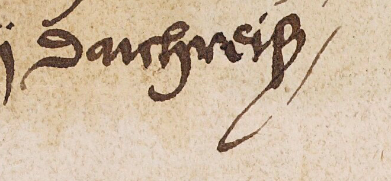 j Darchreiß